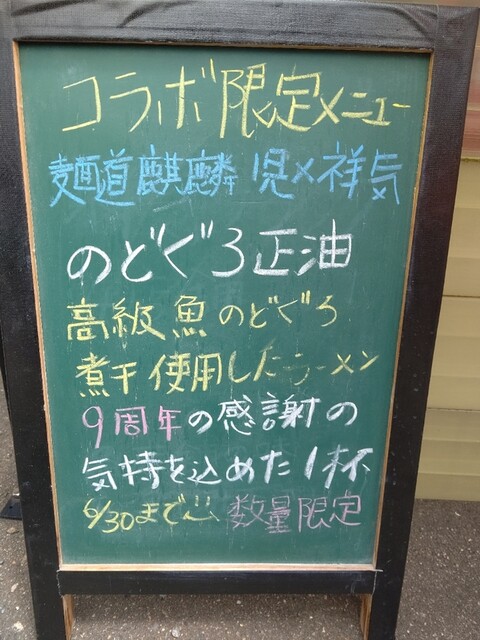 コラボ限定メニュー
麺道麒麟 児×祥気
のどぐろ正油
高級魚のどぐろ
煮干使用したラーメン
9周年の感謝の
気持を込めた1杯
6/30まで 数量限定